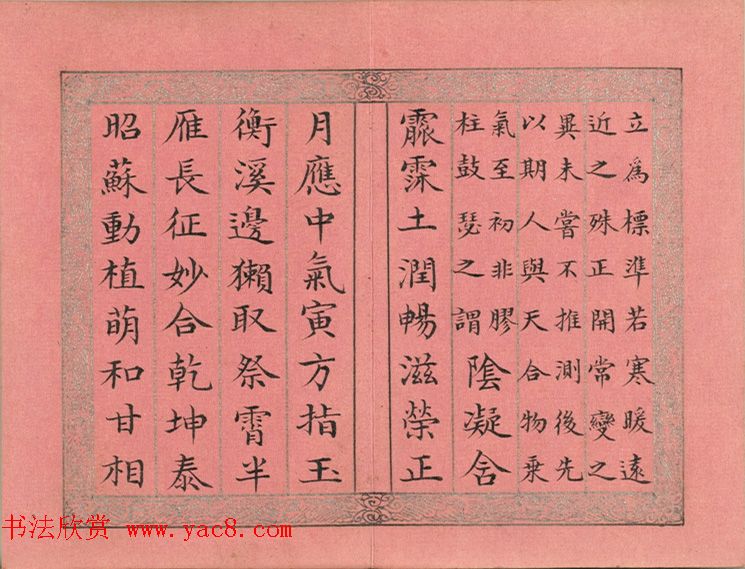 立為標準若寒暖遠
近之殊正開常變之
異未嘗不推測後先
以期人與天合物乗
氣至初非膠
柱鼓瑟之謂
陰凝含
霢霂土潤暢滋榮正
月應中氣寅方指玉
衡溪邊獺取祭霄半
雁長征妙合乾坤泰
昭蘇動植萌和甘相
书法欣赏 www.yac8.com